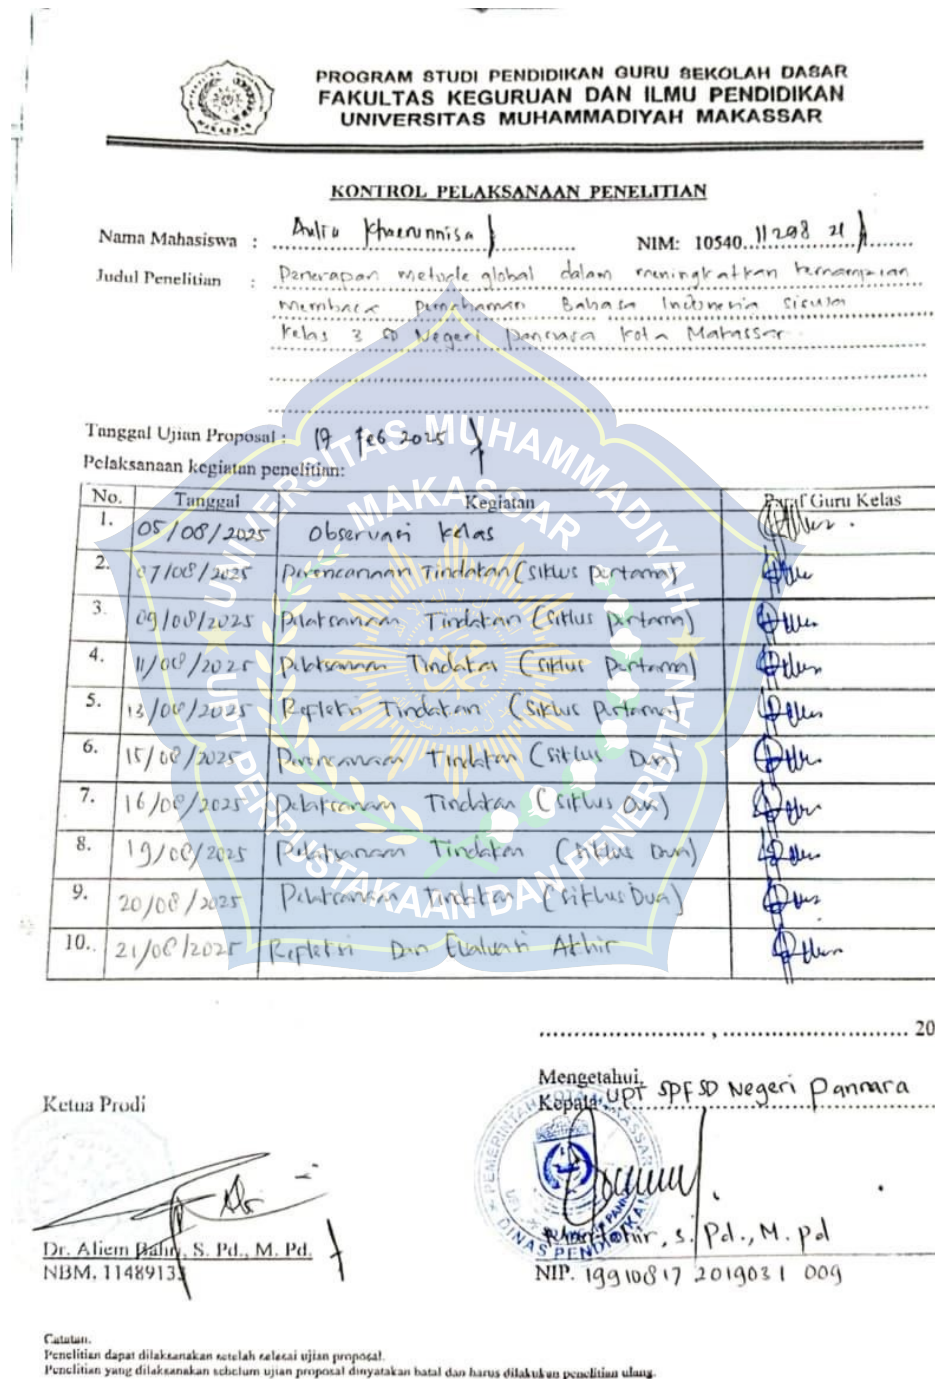 PROGRAM STUDI PENDIDIKAN GURU SEKOLAH DASAR
FAKULTAS KEGURUAN DAN ILMU PENDIDIKAN
UNIVERSITAS MUHAMMADIYAH MAKASSAR
KONTROL PELAKSANAAN PENELITIAN
Nama Mahasiswa : Aulia Khaerunnisa NIM: 10540 11298 21
Judul Penelitian : Penerapan metode global dalam meningkatkan
membaca pemahaman Bahasa Indonesia siswa
Kelas 3 SD Negeri Pannara Kota Makassar
Tanggal Ujian Proposal : 19 Feb 2025
Pelaksanaan kegiatan penelitian:
No. Tanggal Kegiatan Paraf Guru Kelas
1. 05/08/2025 Observasi kelas
2. 07/08/2025 Perencanaan Tindakan (siklus pertama)
3. 09/08/2025 Pelaksanaan Tindakan (siklus pertama)
4. 11/08/2025 Pelaksanaan Tindakan (siklus pertama)
5. 13/08/2025 Refleksi Tindakan (siklus pertama)
6. 15/08/2025 Perencanaan Tindakan (siklus Dua)
7. 16/08/2025 Pelaksanaan Tindakan (siklus Dua)
8. 19/08/2025 Pelaksanaan Tindakan (siklus Dua)
9. 20/08/2025 Pelaksanaan Tindakan (siklus Dua)
10. 21/08/2025 Refleksi Dan Evaluasi Akhir
UNIVERSITAS MUHAMMADIYAH
MAKASSAR
UPT PERPUSTAKAAN DAN PENERBITAN
, 20
Mengetahui,
Ketua Prodi
Kepala UPT SPF SD Negeri Pannara
PEMERINTAH KOTA MAKASSAR
DINAS PENDIDIKAN
Dr. Aliem Bahri, S. Pd., M. Pd.
S. Pd., M. Pd
NBM. 1148913
NIP. 19910817 201903 1 009
Catatan.
Penelitian dapat dilaksanakan setelah selesai ujian proposal.
Penelitian yang dilaksanakan sebelum ujian proposal dinyatakan batal dan harus dilakukan penelitian ulang.